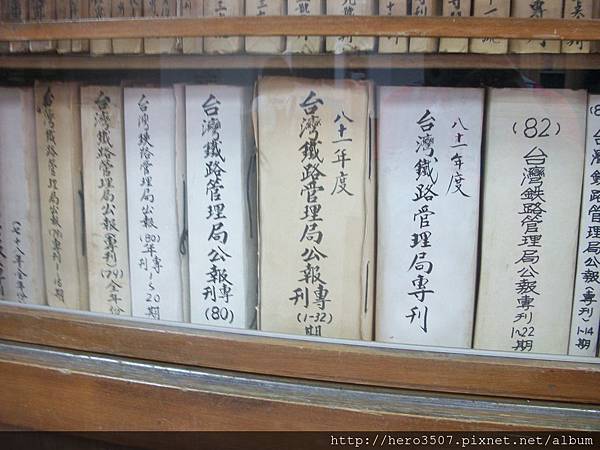 (七十八年全年份
台灣鐵路管理局公報
台灣鐵路管理局公報(專刊)(79)全年份
台灣鉄路管理局公報(80)年專刊1~20期
台灣鐵路管理局公報專刊(80)
八十一年度
台灣鐵路管理局公報專刊(1-32)期
八十一年度
台灣鐵路管理局專刊
(82)
台灣鉄路管理局公報專刊1~22期
台灣鉄路管理局公報(專刊)1-14期
http://hero3507.pixnet.net/album